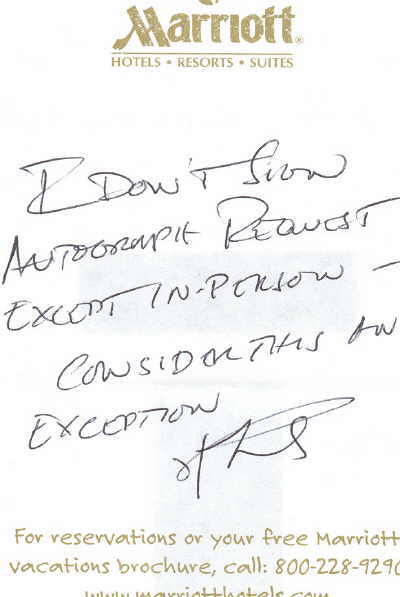 Marriott®
HOTELS • RESORTS • SUITES
I DON'T SIGN
AUTOGRAPH REQUEST
EXCEPT IN-PERSON -
CONSIDER THIS AN
EXCEPTION
For reservations or your free Marriott
vacations brochure, call: 800-228-9290
www.marriotthotels.com